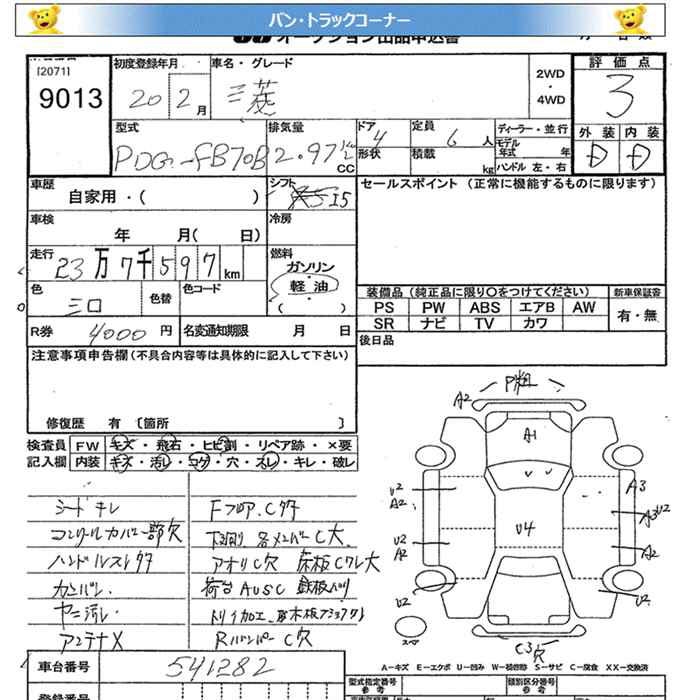 バン・トラックコーナー
オークション出品申込書
[2071]
9013
初度登録年月
20 2月
車名・グレード
三菱
2WD
・
4WD
評価点
3
外装 内装
D D
型式
PDG-FB70B
排気量
2.97 CC
ドア
4
形状
定員
6人
積載
kg
ディーラー・並行
モデル年式 年
ハンドル 左・右
車歴
自家用・( )
シフト
I5
車検
年 月( 日)
冷房
走行
23万7千597km
燃料
ガソリン
・
軽油
( )
色
三口
色替
色コード
R券
4000円
名変通知期限 月 日
セールスポイント (正常に機能するものに限ります)
装備品(純正品に限り〇をつけてください)
PS PW ABS エアB AW
SR ナビ TV カワ
新車保証書
有・無
後日品
注意事項申告欄(不具合内容等は具体的に記入して下さい)
修復歴 有 〔箇所 〕
検査員 FW キズ・飛石・ヒビ割・リペア跡・×要
記入欄 内装 キズ・汚レ・コゲ・穴・スレ・キレ・破レ
シートキレ
コンソールカバー一部欠
ハンドルスレタタ
カンバン
ヤニ汚レ
アンテナX
FフロアC
下回り各メンバーC大
アオリC穴 床板Cワレ大
荷台AUSC 鉄板バリ
Rバンパー C穴
A2
A1
U2
A2
U2
A2
U2
U4
A3
A3U2
A2
U2
C3穴
スペア
A-キズ E-エクボ U-凹み W-補修跡 S-サビ C-腐食 XX-交換済
車台番号
541282
登録番号
型式指定番号
参考
類別区分番号
参考